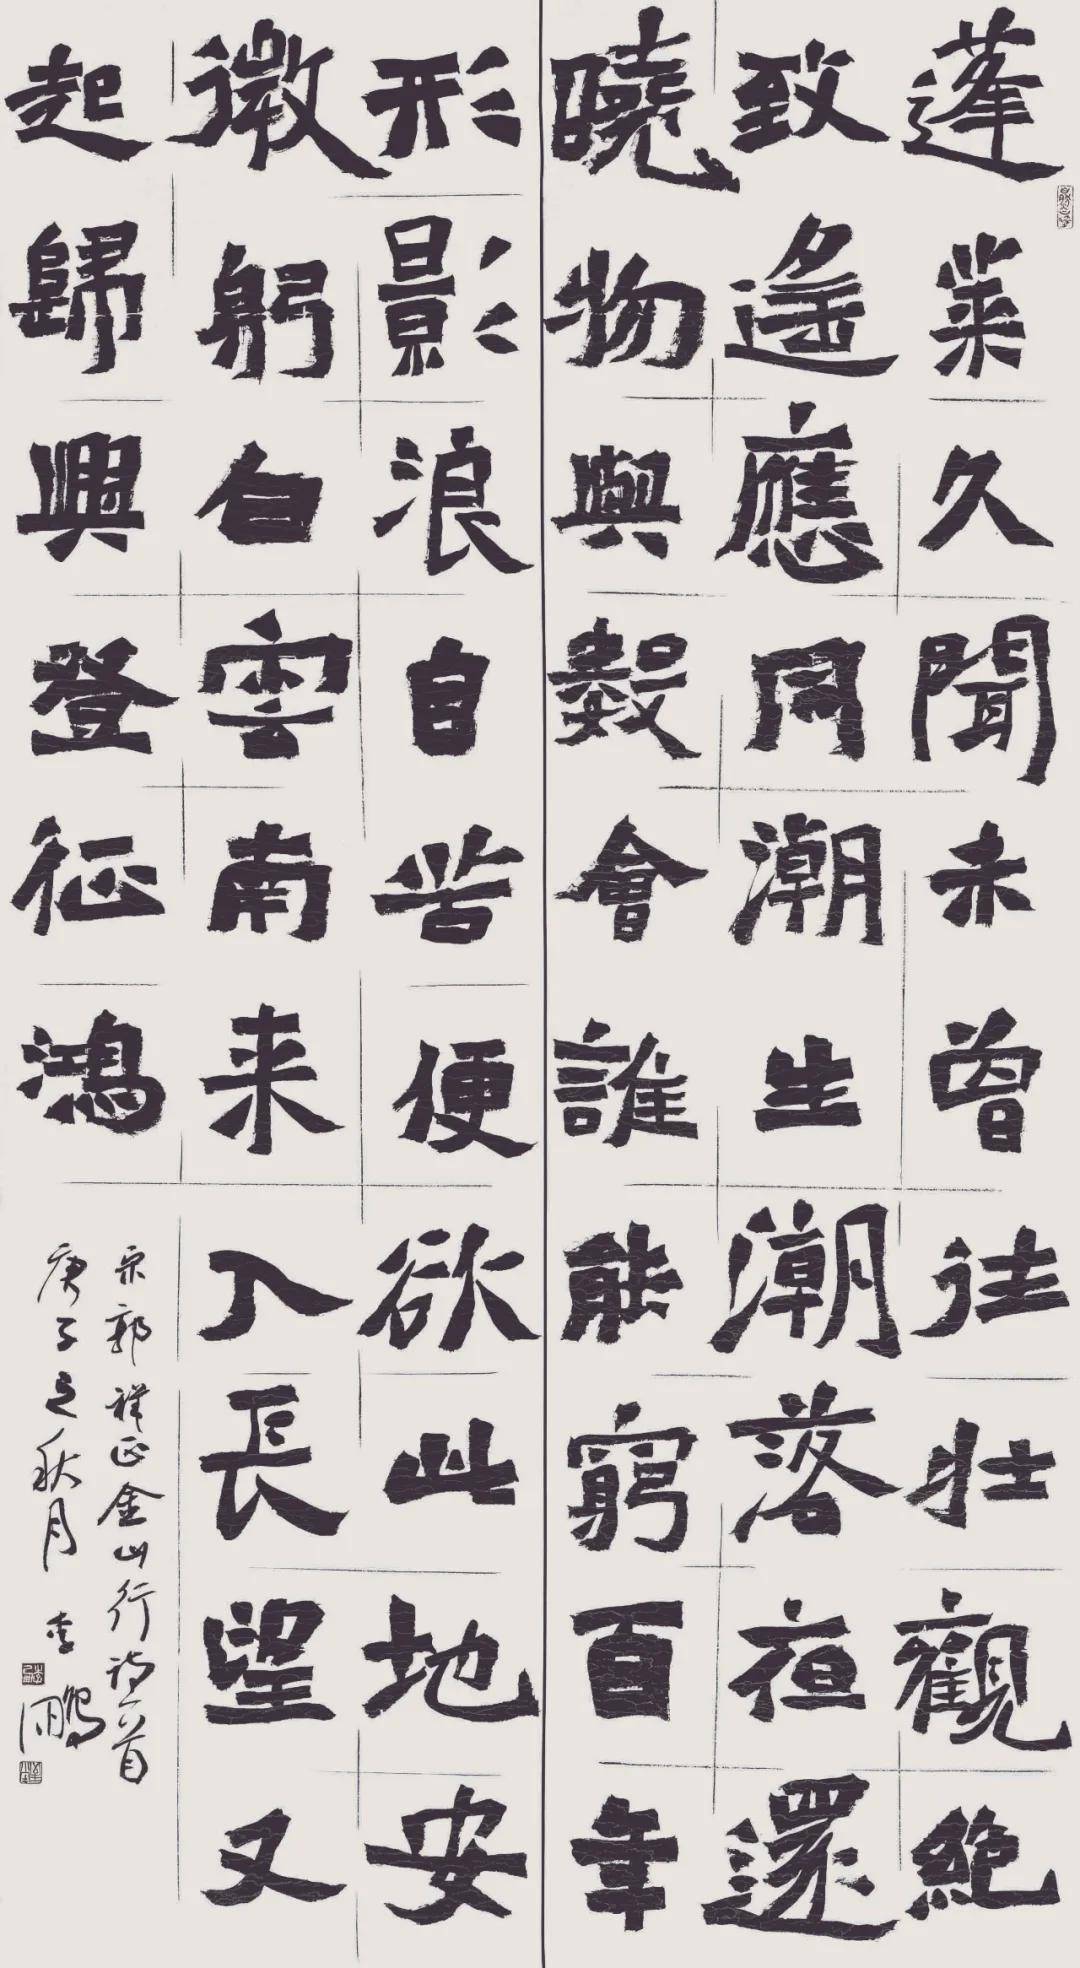 蓬莱久聞未曾往壮觀絶
致遥應同潮生潮落夜還
曉物與數會誰能窮百年
形影浪自苦便欲此地安
微躬白雲南来入長望又
起歸興登征鴻
宋郭祥正金山行诗一首
庚子之秋月 李鵬